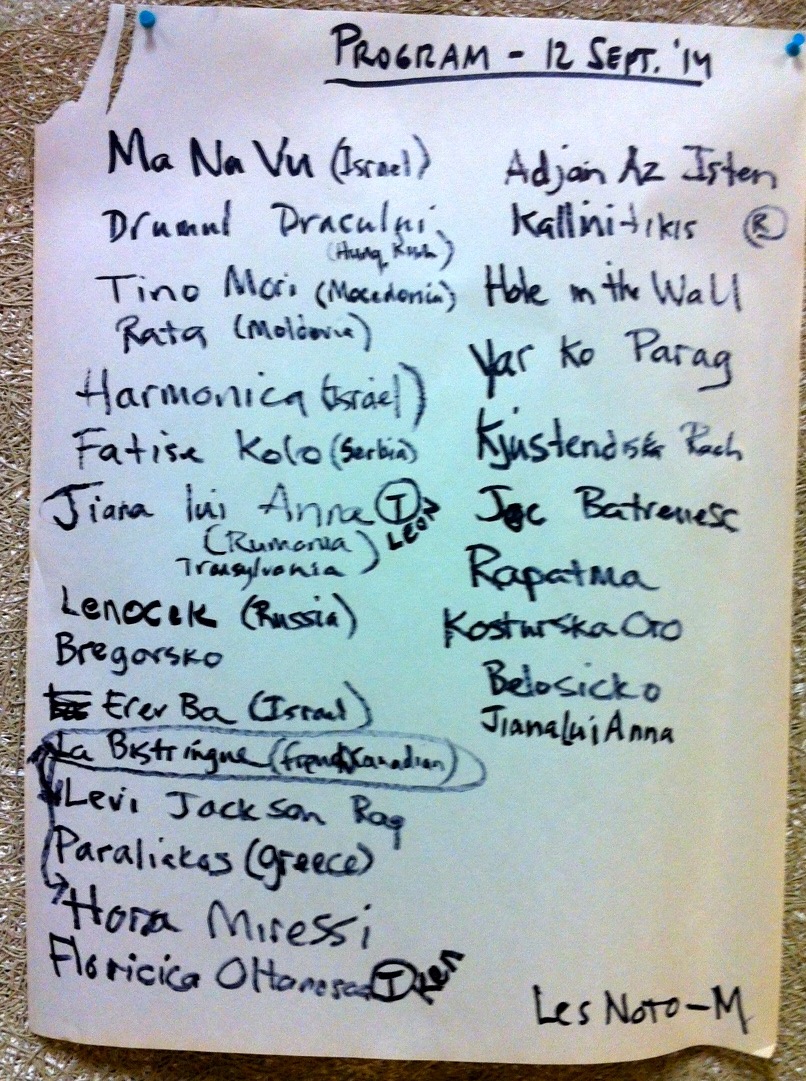 PROGRAM - 12 SEPT. '14
Ma Na Vu (Israel)
Drumul Dracului
(Hung
Tino Mori (Macedonia)
Rata (Moldavia)
Harmonica (Israel)
Fatise Kolo (Serbia)
Jiana lui Anna T Leon
(Rumania)
Transylvania
Lenocek (Russia)
Bregovsko
Erev Ba (Israel)
La Bistringue (French Canadian)
Levi Jackson Rag
Paraliakos (Greece)
Hora Miressi
Floricica Oltaneasca T Ken
Adjon Az Isten
Kallinitikis R
Hole in the Wall
Yar Ko Parag
Kjustendiska Rach
Joc Batrenesc
Rapatma
Kosturska Oro
Belosicko
Jiana Lui Anna
Les Noto-M